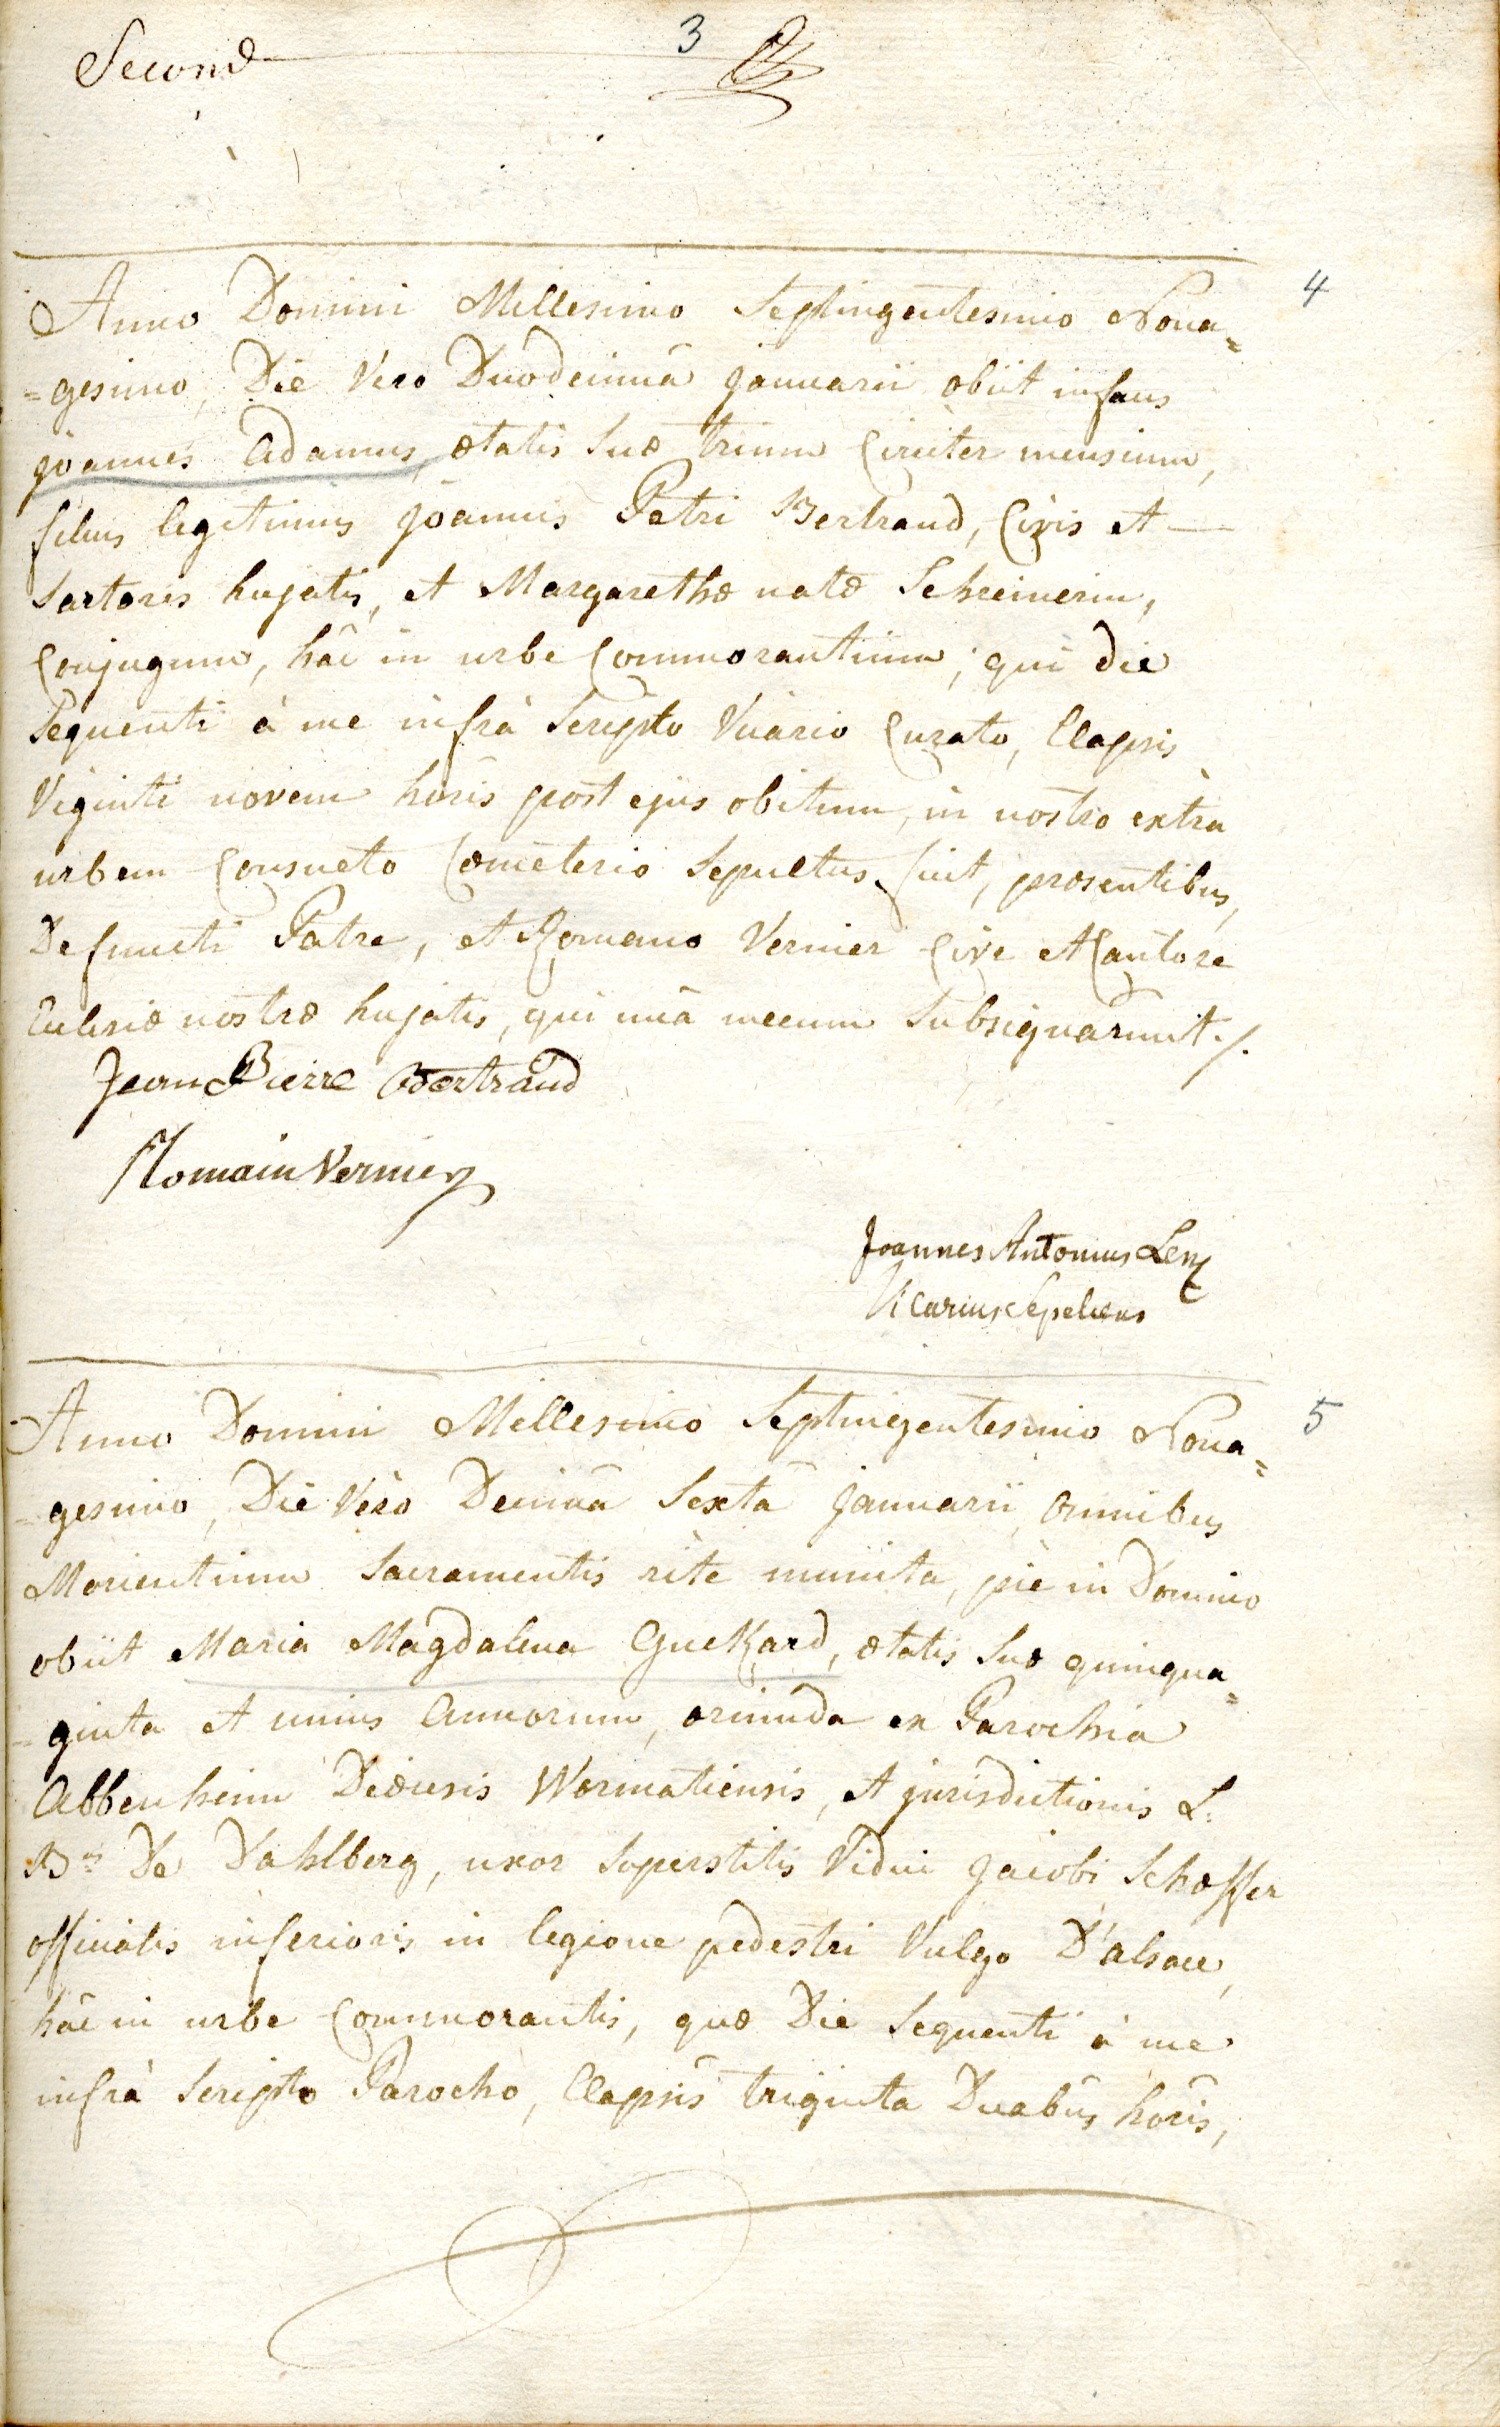 Second
3
4
Anno Domini Millesimo Septingentesimo Nona=
=gesimo, Die Vero Duodecimâ Januarii obiit infans
joannes Adamus, ætatis suæ trium Circiter mensium,
filius legitimus joannis Petri Bertrand, Civis et —
Sartoris hujatis, et Margarethæ natæ Schreinerin,
Conjugum, hâc in urbe Commorantium; qui die
Sequenti à me infrà Scripto Vicario Curato, Elapsis
Viginti novem horis post ejus obitum, in nostro extra
urbem Consueto Cœmeterio Sepultus fuit, præsentibus,
Defuncti Patre, et Romano Vernier Cive et Cantore
Ecclesiæ nostræ hujatis, qui unà mecum Subsignarunt./.
Jean Pierre Bertrand
Romain Vernier
Joannes Antonius Lenz
Vicarius Sepeliens
5
Anno Domini Millesimo Septingentesimo Nona=
=gesimo, Die Verò Decimâ Sextâ Januarii, Omnibus
Morientium Sacramentis rite munita, piè in Domino
obiit Maria Magdalena Guckard, ætatis suæ quinqua=
=ginta et unius Annorum, oriunda ex Parochia
Abbenheim Diœcesis Wormatiensis, et jurisdictionis L:
B:is De Dahlberg, uxor Superstitis Vidui Jacobi Schæffer
officialis inferioris in legione pedestri Vulgo D'alsace,
hâc in urbe Commorantis, quæ Die Sequenti à me
infrà Scripto Parocho, Elapsis triginta Duabus horis,